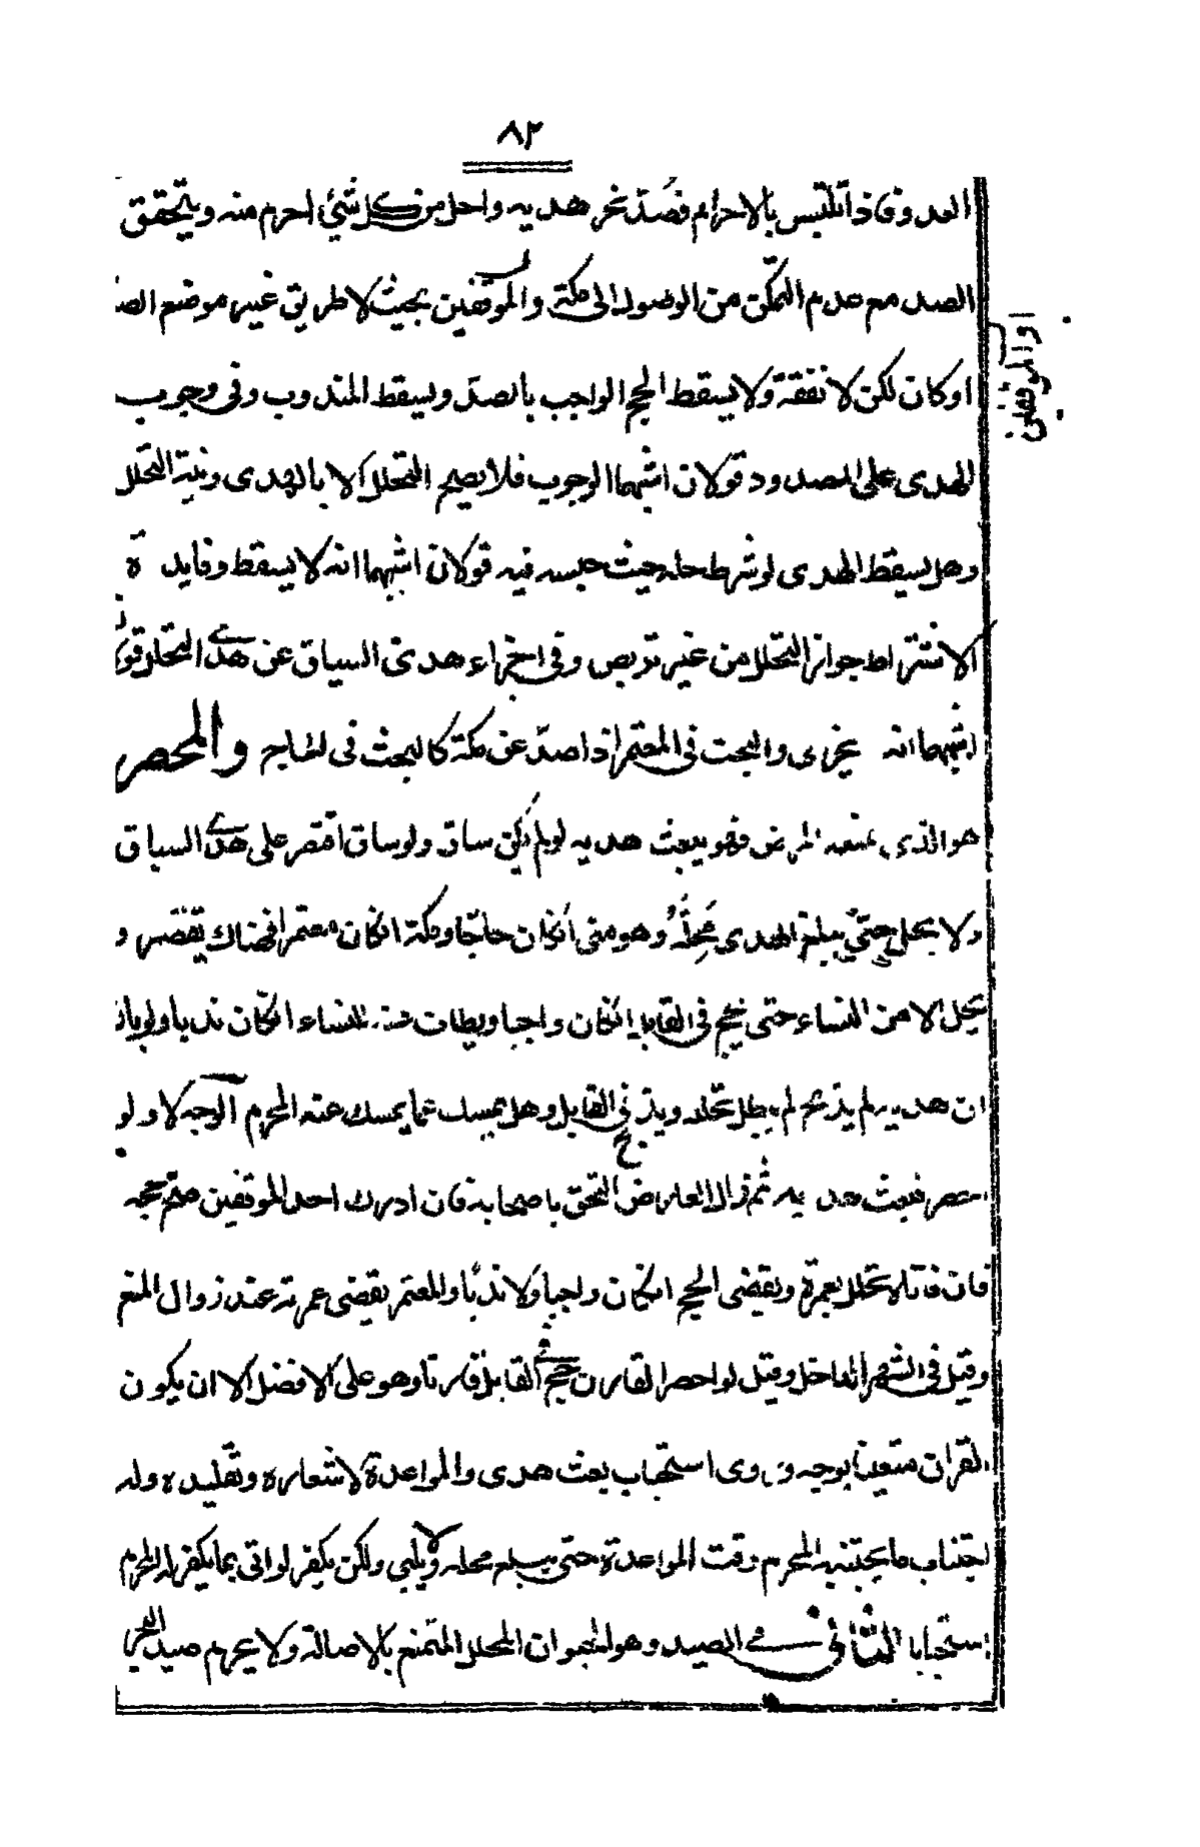 ٨٢
العدو فاذا تلبّس بالاحرام فصُدّ نحر هديه واحل من كل شئ احرم منه ويتحقق
الصد مع عدم التمكّن من الوصول الى مكة والموقفين بحيث لا طريق غير موضع الصد
او الموقفين
او كان لكن لا نفقة ولا يسقط الحج الواجب بالصدّ ويسقط المندوب وفى وجوب
الهدى على المصدود قولان اشبهما الوجوب فلا يصح التحلل الا بالهدى ونية التحلل
وهل يسقط الهدى لو شرط حله حيث حبسه فيه قولان اشبهما انه لا يسقط وفايدة
الاشتراط جواز التحلل من غير تربص وفى اجزاء هدى السياق عن هدى التحلل قولان
اشبهما انه يجزى والبحث فى المعتمر اذا صدّ عن مكة كالبحث فى الحاج والمحصر
هو الذى يمنعه المرض فهو يبعث هديه لو لم يكن ساق ولو ساق اقتصر على هدى السياق
ولا يحل حتىّ يبلغ الهدى مَحِلَّهُ وهو منى انكان حاجّا ومكة انكان معتمرا فهناك يقصر و
يحل الا من النساء حتى يحج فى القابل انكان واجبا ويطاف عنه للنساء انكان ندبا ولو بان
ان هديه لم يذبح لم يبطل تحلله ويذبح فى القابل وهل يمسك عما يمسك عنه المحرم الوجه لا ولو
احصر فبعث هديه ثم زال العارض التحق باصحابه فان ادرك احد الموقفين صحّ حجه
فان فاتاه تحلل بعمرة ويقضى الحج انكان واجبا ولا ندبا والمعتمر يقضى عمرته عند زوال المنع
وقيل فى الشهر الداخل وقيل لو احصر القارن حج فى القابل قارنا وهو على الافضل الا ان يكون
القران متعينا بوجه وروى استحباب بعث هدى والمواعدة لاشعاره وتقليده وله
اجتناب ما يجتنبه المحرم وقت المواعدة حتى يبلغ محله ولا يلبى ولكن يكفر لو اتى بما يكفر له المحرم
استحبابا الثانى فى الصيد وهو الحيوان المحلل الممتنع بالاصالة ولا يحرم صيد البحر